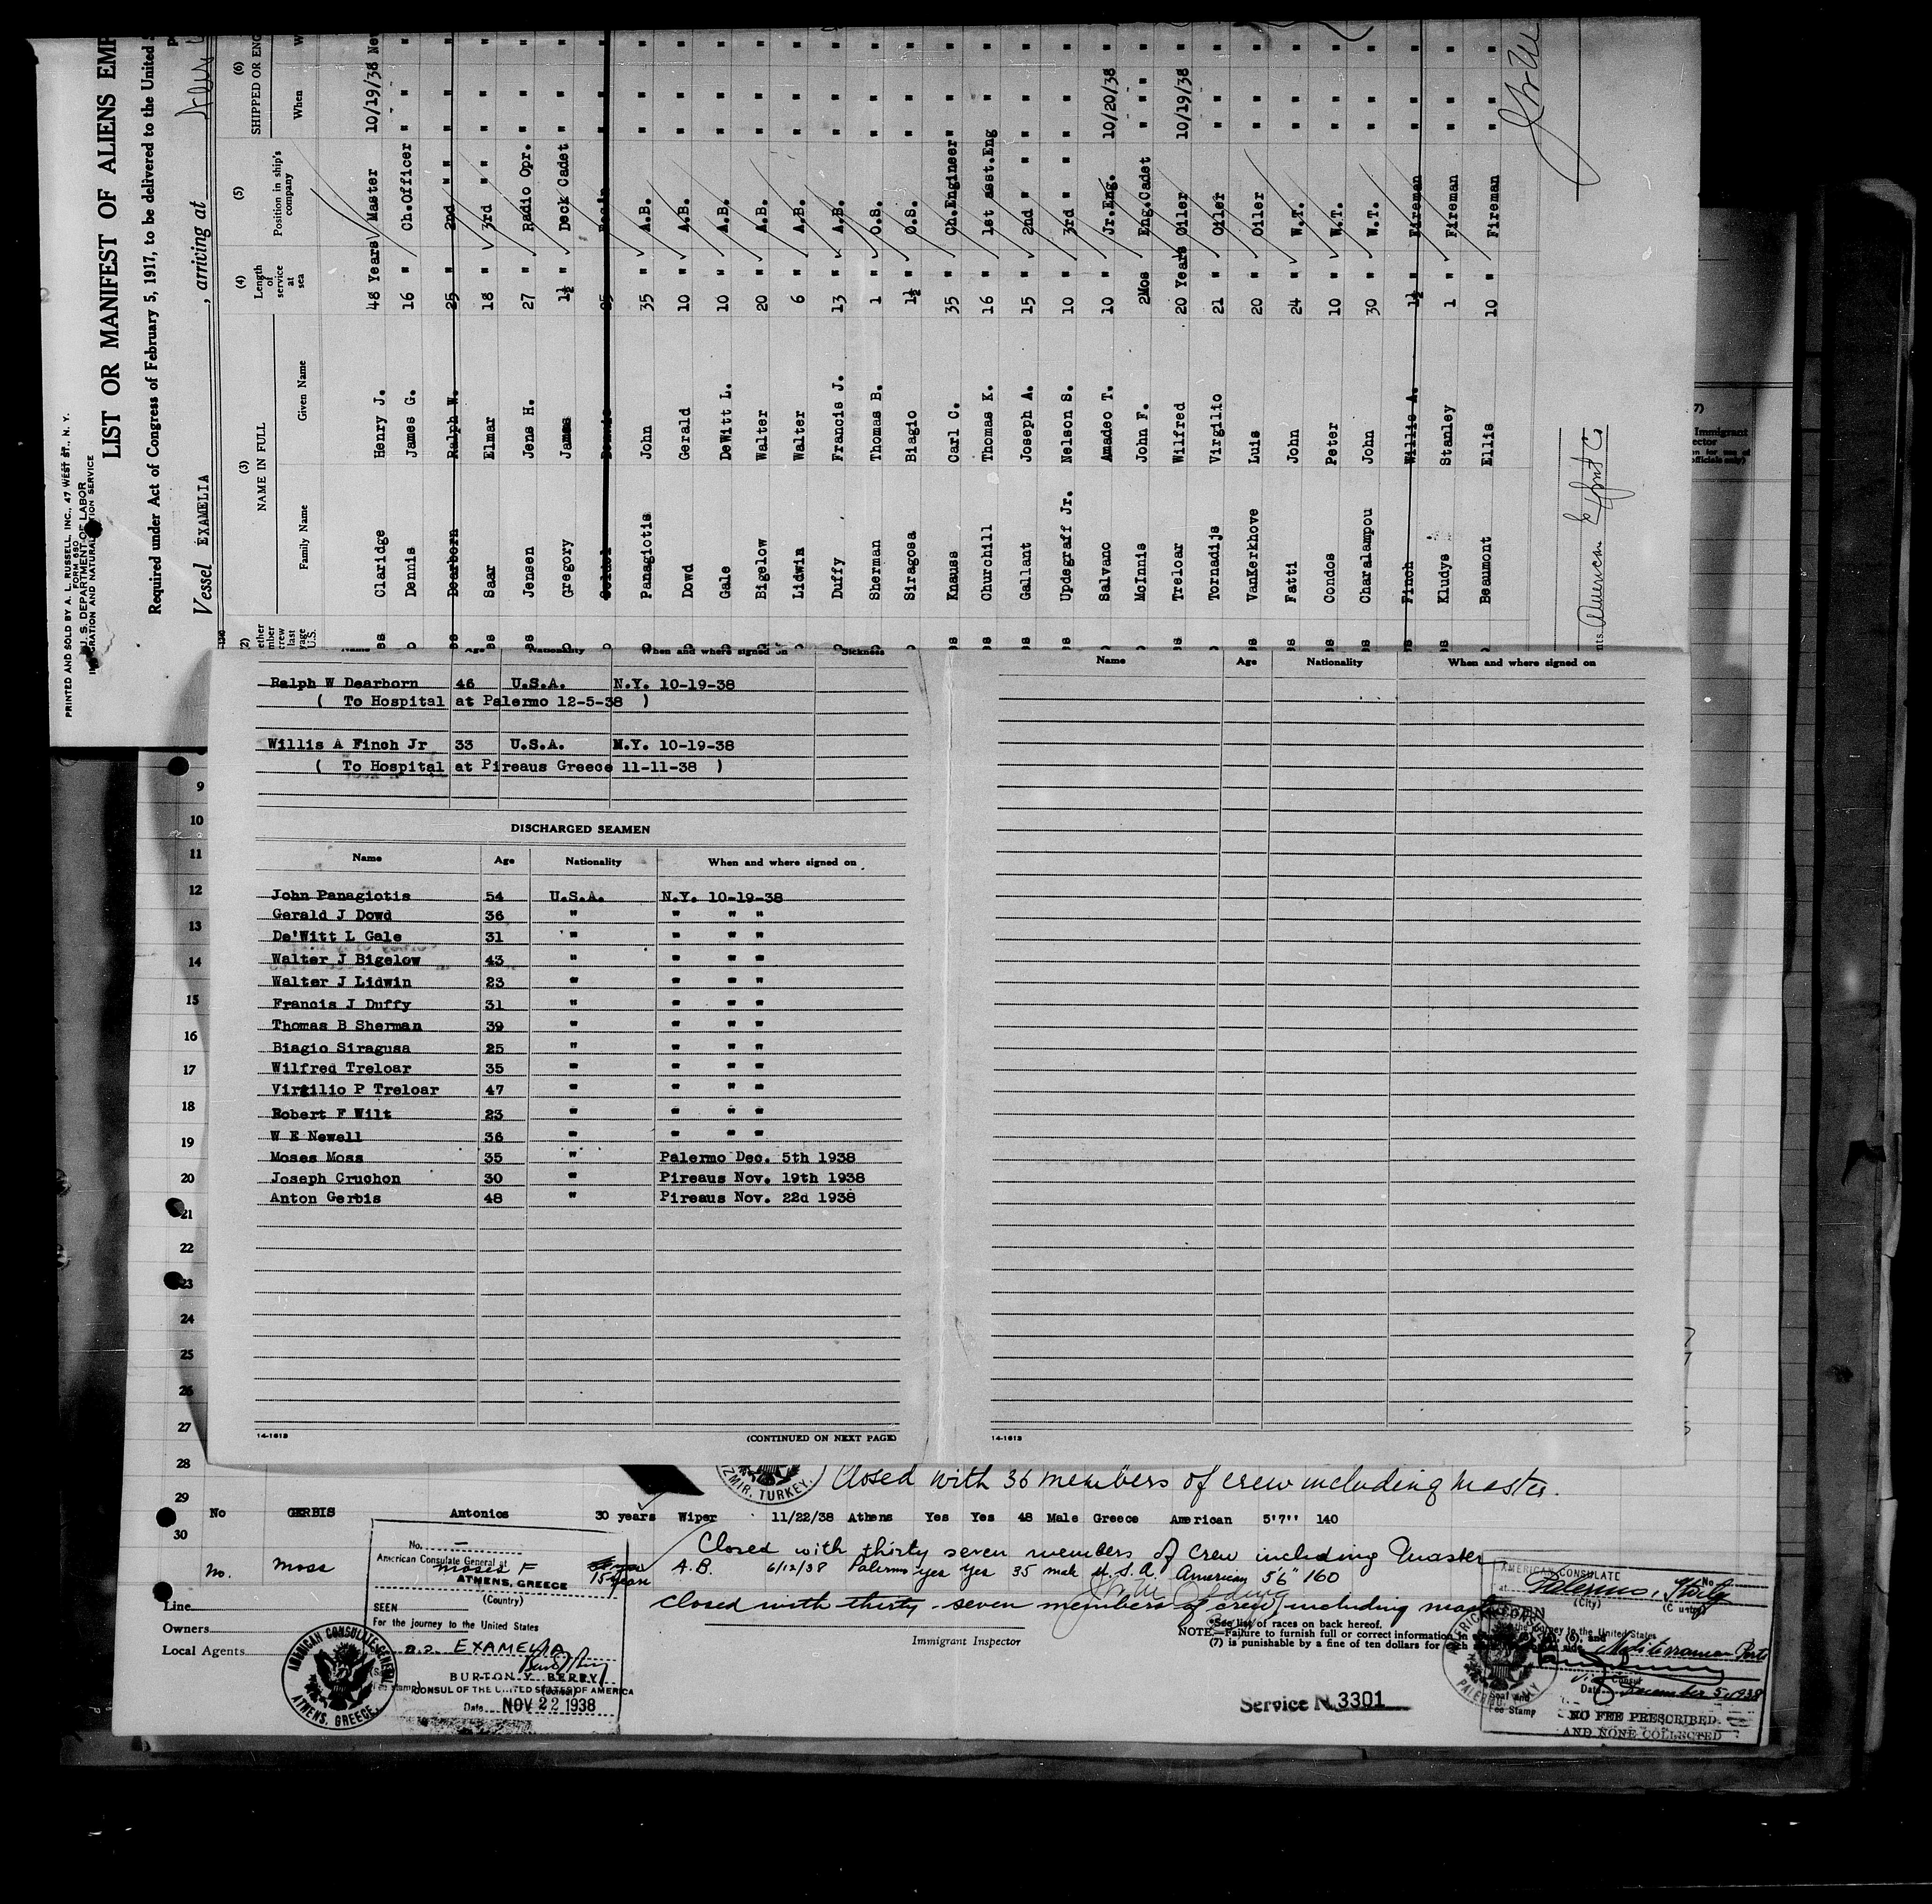 PRINTED AND SOLD BY A. L. RUSSELL, INC., 47 WEST ST., N. Y.
FORM 680
U. S. DEPARTMENT OF LABOR
IMMIGRATION AND NATURALIZATION SERVICE
LIST OR MANIFEST OF ALIENS EMP
Required under Act of Congress of February 5, 1917, to be delivered to the United
Vessel EXAMELIA , arriving at
(2) (3) (4) (5) (6)
NAME IN FULL Length of service at sea Position in ship's company SHIPPED OR ENG
Family Name Given Name When
Claridge Henry J. 48 Years Master 10/19/38 New
Dennis James G. 16 " Ch.Officer " "
Dearborn Ralph W. 25 " 2nd " " " "
Saar Elmar 18 " 3rd " " " "
Jensen Jens H. 27 " Radio Opr. " "
Gregory James 1½ " Deck Cadet " "
Panagiotis John 35 " A.B. " "
Dowd Gerald 10 " A.B. " "
Gale DeWitt L. 10 " A.B. " "
Bigelow Walter 20 " A.B. " "
Lidwin Walter 6 " A.B. " "
Duffy Francis J. 13 " A.B. " "
Sherman Thomas B. 1 " O.S. " "
Siragosa Biagio 1½ " O.S. " "
Knauss Carl C. 35 " Ch.Engineer " "
Churchill Thomas K. 16 " 1st asst.Eng " "
Gallant Joseph A. 15 " 2nd " " " "
Updegraff Jr. Nelson S. 10 " 3rd " " " "
Salvano Amadeo T. 10 " Jr.Eng. 10/20/38 "
McInnis John F. 2Mos Eng.Cadet " "
Treloar Wilfred 20 Years Oiler 10/19/38 "
Tornadijs Virgilio 21 " Oiler " "
VanKerkhove Luis 20 " Oiler " "
Fatti John 24 " W.T. " "
Condos Peter 10 " W.T. " "
Charalampou John 30 " W.T. " "
Finch Willis A. 1½ " Fireman " "
Kludys Stanley 1 " Fireman " "
Beaumont Ellis 10 " Fireman " "
American Export Co
Name Age Nationality When and where signed on Sickness
Ralph W Dearborn 46 U.S.A. N.Y. 10-19-38
( To Hospital at Palermo 12-5-38 )
Willis A Finch Jr 33 U.S.A. N.Y. 10-19-38
( To Hospital at Pireaus Greece 11-11-38 )
DISCHARGED SEAMEN
Name Age Nationality When and where signed on
John Panagiotis 54 U.S.A. N.Y. 10-19-38
Gerald J Dowd 36 " " " "
De'Witt L Gale 31 " " " "
Walter J Bigelow 43 " " " "
Walter J Lidwin 23 " " " "
Francis J Duffy 31 " " " "
Thomas B Sherman 39 " " " "
Biagio Siragusa 25 " " " "
Wilfred Treloar 35 " " " "
Virgilio P Treloar 47 " " " "
Robert F Wilt 23 " " " "
W E Newell 36 " " " "
Moses Moss 35 " Palermo Dec. 5th 1938
Joseph Cruchon 30 " Pireaus Nov. 19th 1938
Anton Gerbis 48 " Pireaus Nov. 22d 1938
14-1613 (CONTINUED ON NEXT PAGE)
Name Age Nationality When and where signed on
14-1613
9
10
11
12
13
14
15
16
17
18
19
20
21
22
23
24
25
26
27
28
29
30
IZMIR, TURKEY.
Closed with 36 members of crew including master.
No GERBIS Antonios 30 years Wiper 11/22/38 Athens Yes Yes 48 Male Greece American 5'7" 140
Closed with thirty seven members of crew including Master
No. Moss Moses F 15 years A.B. 6/12/38 Palermo yes yes 35 male U.S.A. American 5'6" 160
closed with thirty-seven members of crew, including master
Line
Owners
Local Agents
Immigrant Inspector
See list of races on back hereof.
NOTE—Failure to furnish full or correct information in
(7) is punishable by a fine of ten dollars for each
No. —
American Consulate General at
ATHENS, GREECE
(Country)
SEEN
For the journey to the United States
s.s. EXAMELIA
BURTON Y. BERRY
CONSUL OF THE UNITED STATES OF AMERICA
Date NOV 22 1938
AMERICAN CONSULATE GENERAL
ATHENS, GREECE.
Service No. 3301
AMERICAN CONSULATE No.
at Palermo, Italy
(City) (Country)
SEEN
the journey to the United States
Mediterranean Ports
Vice Consul
Date December 5, 1938
Seal and
Fee Stamp
NO FEE PRESCRIBED
AND NONE COLLECTED
PALERMO, ITALY